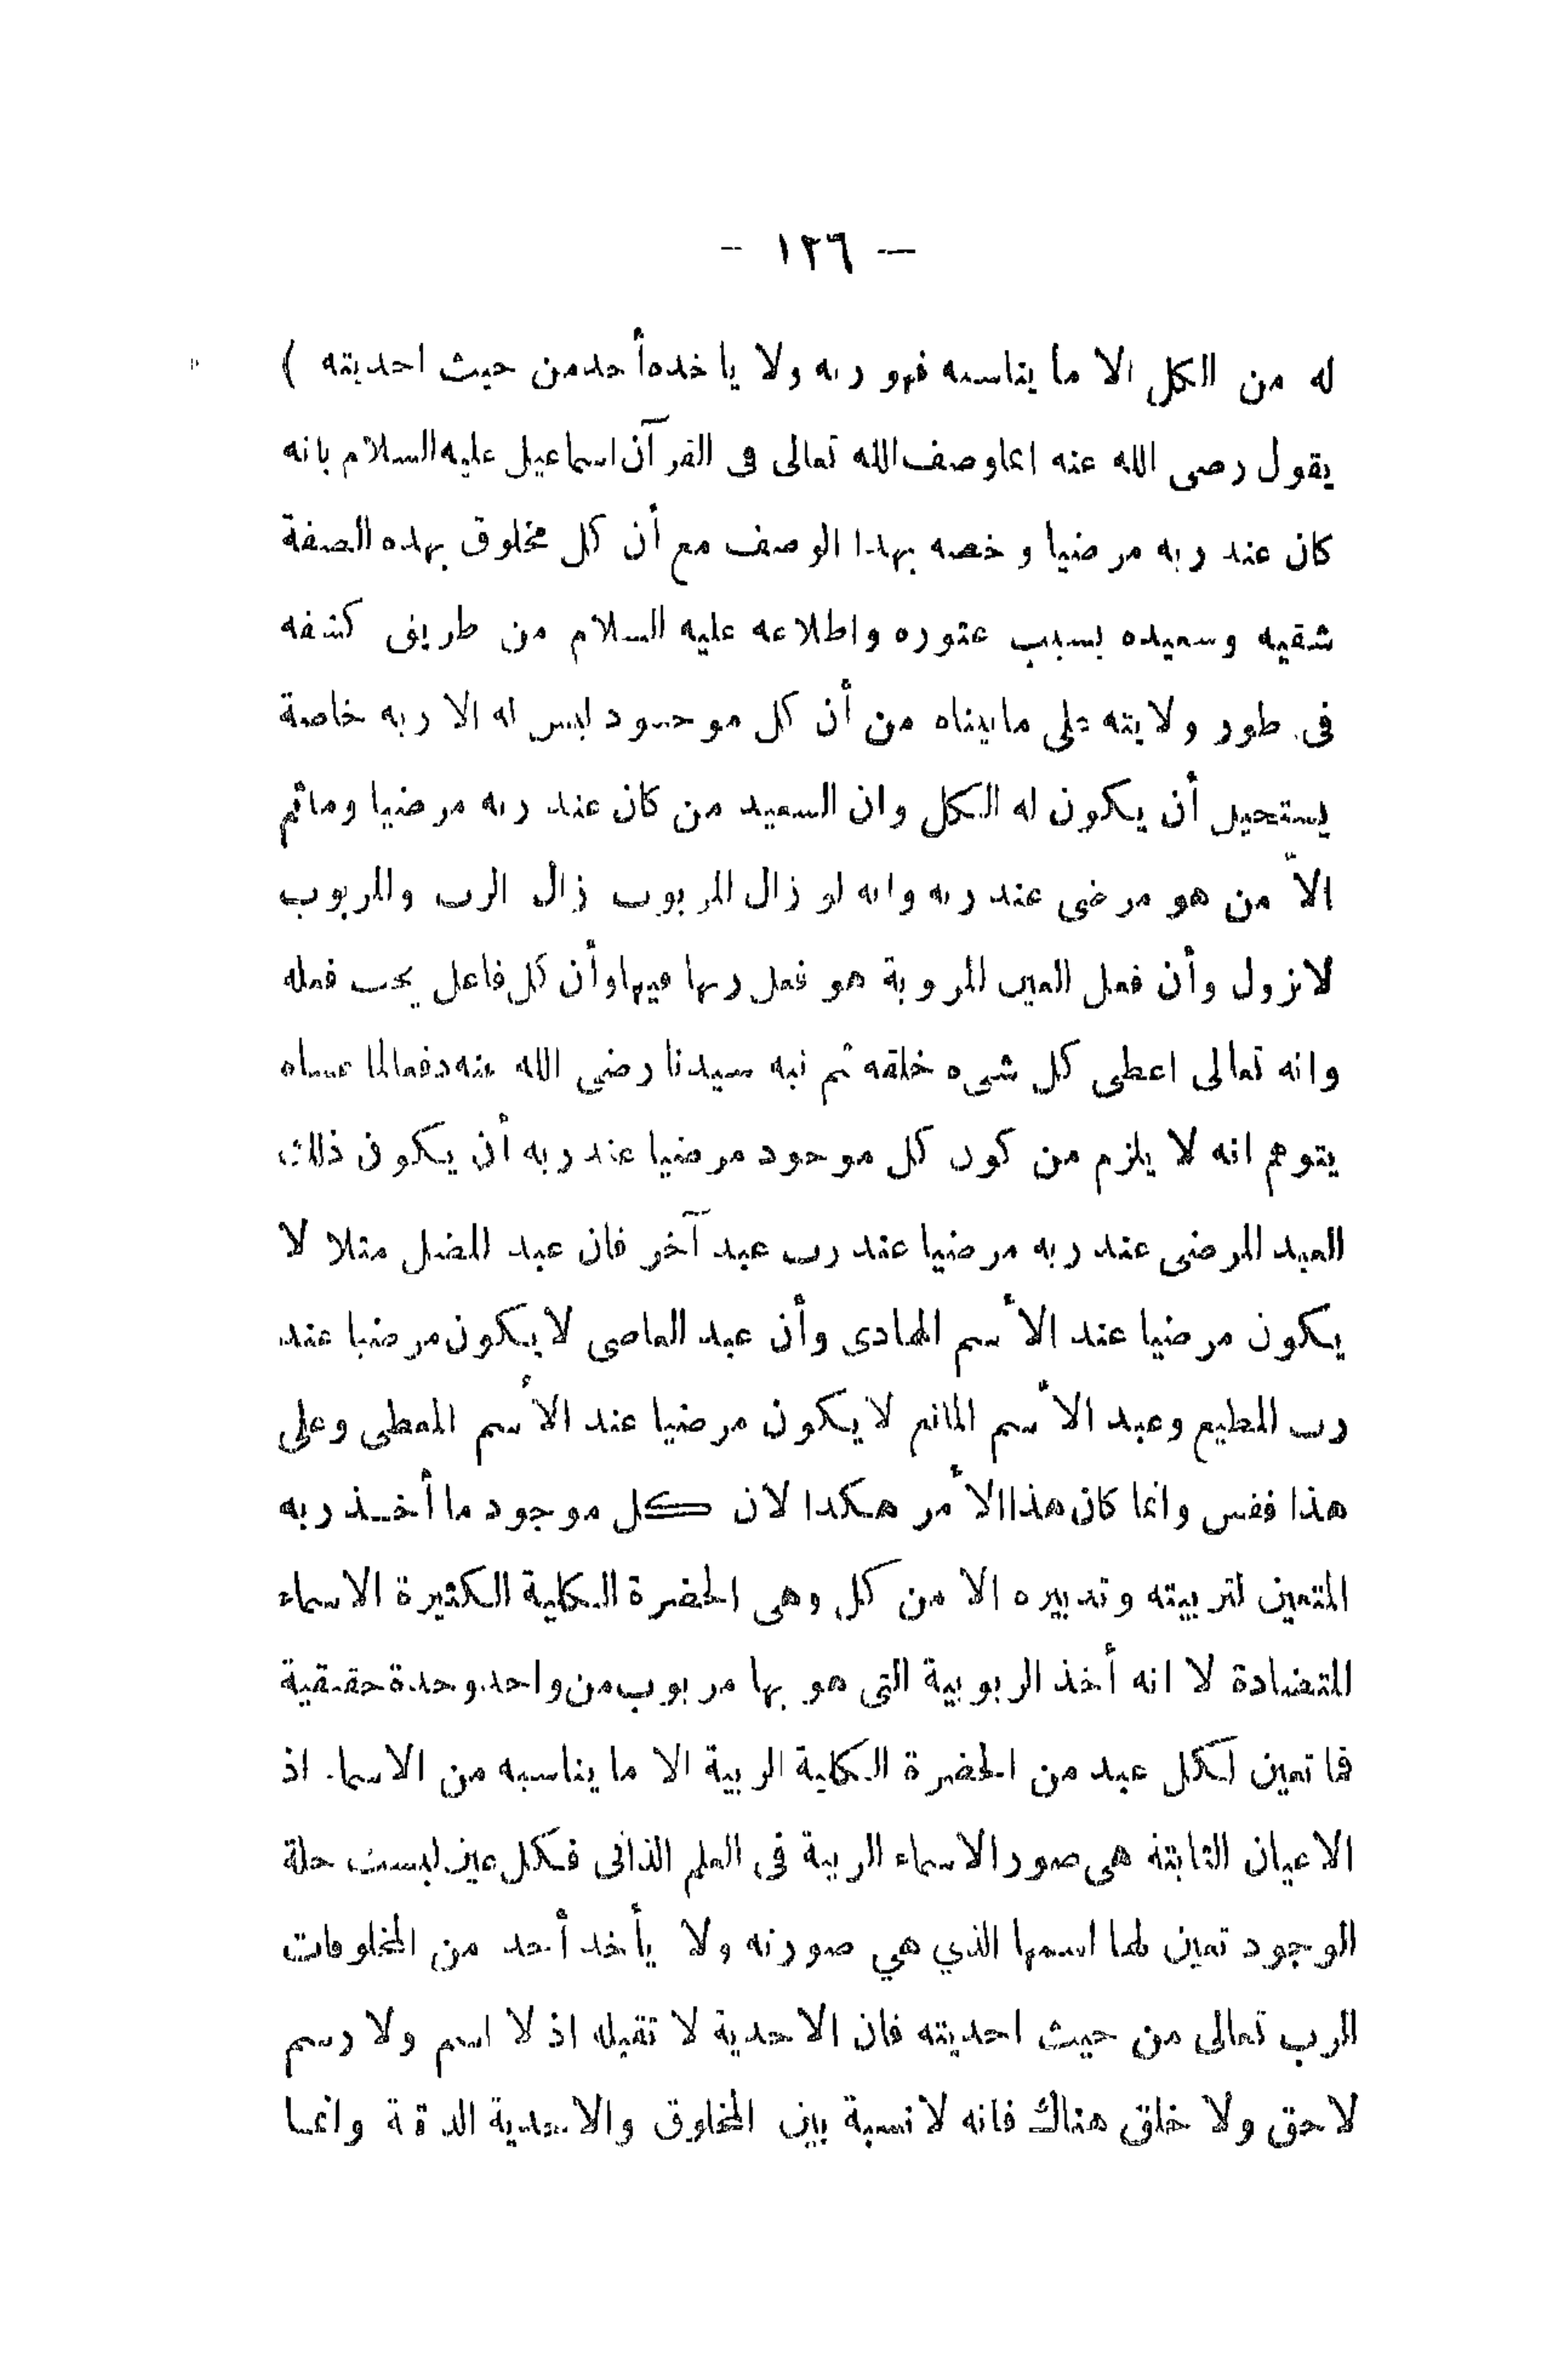 — ١٢٦ —
له من الكل الا ما يناسبه فهو ربه ولا ياخذه أحد من حيث احديته )
يقول رضى الله عنه انما وصف الله تعالى فى القرآن اسماعيل عليه السلام بانه
كان عند ربه مرضيا وخصه بهذا الوصف مع أن كل مخلوق بهذه الصفة
شقيه وسعيده بسبب عثوره واطلاعه عليه السلام من طريق كشفه
فى طور ولايته على ما بيناه من أن كل موجود ليس له الا ربه خاصة
يستحيل أن يكون له الكل وان السعيد من كان عند ربه مرضيا وماثم
الاّ من هو مرضى عند ربه وانه لو زال المربوب زال الرب والمربوب
لا يزول وأن فعل العين المربوبة هو فعل ربها فيها وأن كل فاعل يحب فعله
وانه تعالى اعطى كل شىء خلقه ثم نبه سيدنا رضي الله عنه دفعا لما عساه
يتوهم انه لا يلزم من كون كل موجود مرضيا عند ربه أن يكون ذلك
العبد المرضى عند ربه مرضيا عند رب عبد آخر فان عبد المضل مثلا لا
يكون مرضيا عند الأسم الهادى وأن عبد العاصى لا يكون مرضيا عند
رب المطيع وعبد الأسم المانع لا يكون مرضيا عند الأسم المعطى وعلى
هذا فقس وانما كان هذا الأمر هكذا لان كل موجود ما أخذ ربه
المتعين لتربيته وتدبيره الا من كل وهى الحضرة الكلية الكثيرة الاسماء
المتضادة لا انه أخذ الربوبية التى هو بها مربوب من واحد وحدة حقيقية
فما تعين لكل عبد من الحضرة الكلية الربية الا ما يناسبه من الاسماء اذ
الاعيان الثابتة هى صور الاسماء الربية فى العلم الذاتى فكل عين لبست حلة
الوجود تعين لها اسمها الذي هي صورته ولا يأخذ أحد من المخلوقات
الرب تعالى من حيث احديته فان الاحدية لا تقبله اذ لا اسم ولا رسم
لا حق ولا خلق هناك فانه لا نسبة بين المخلوق والاحدية وانما